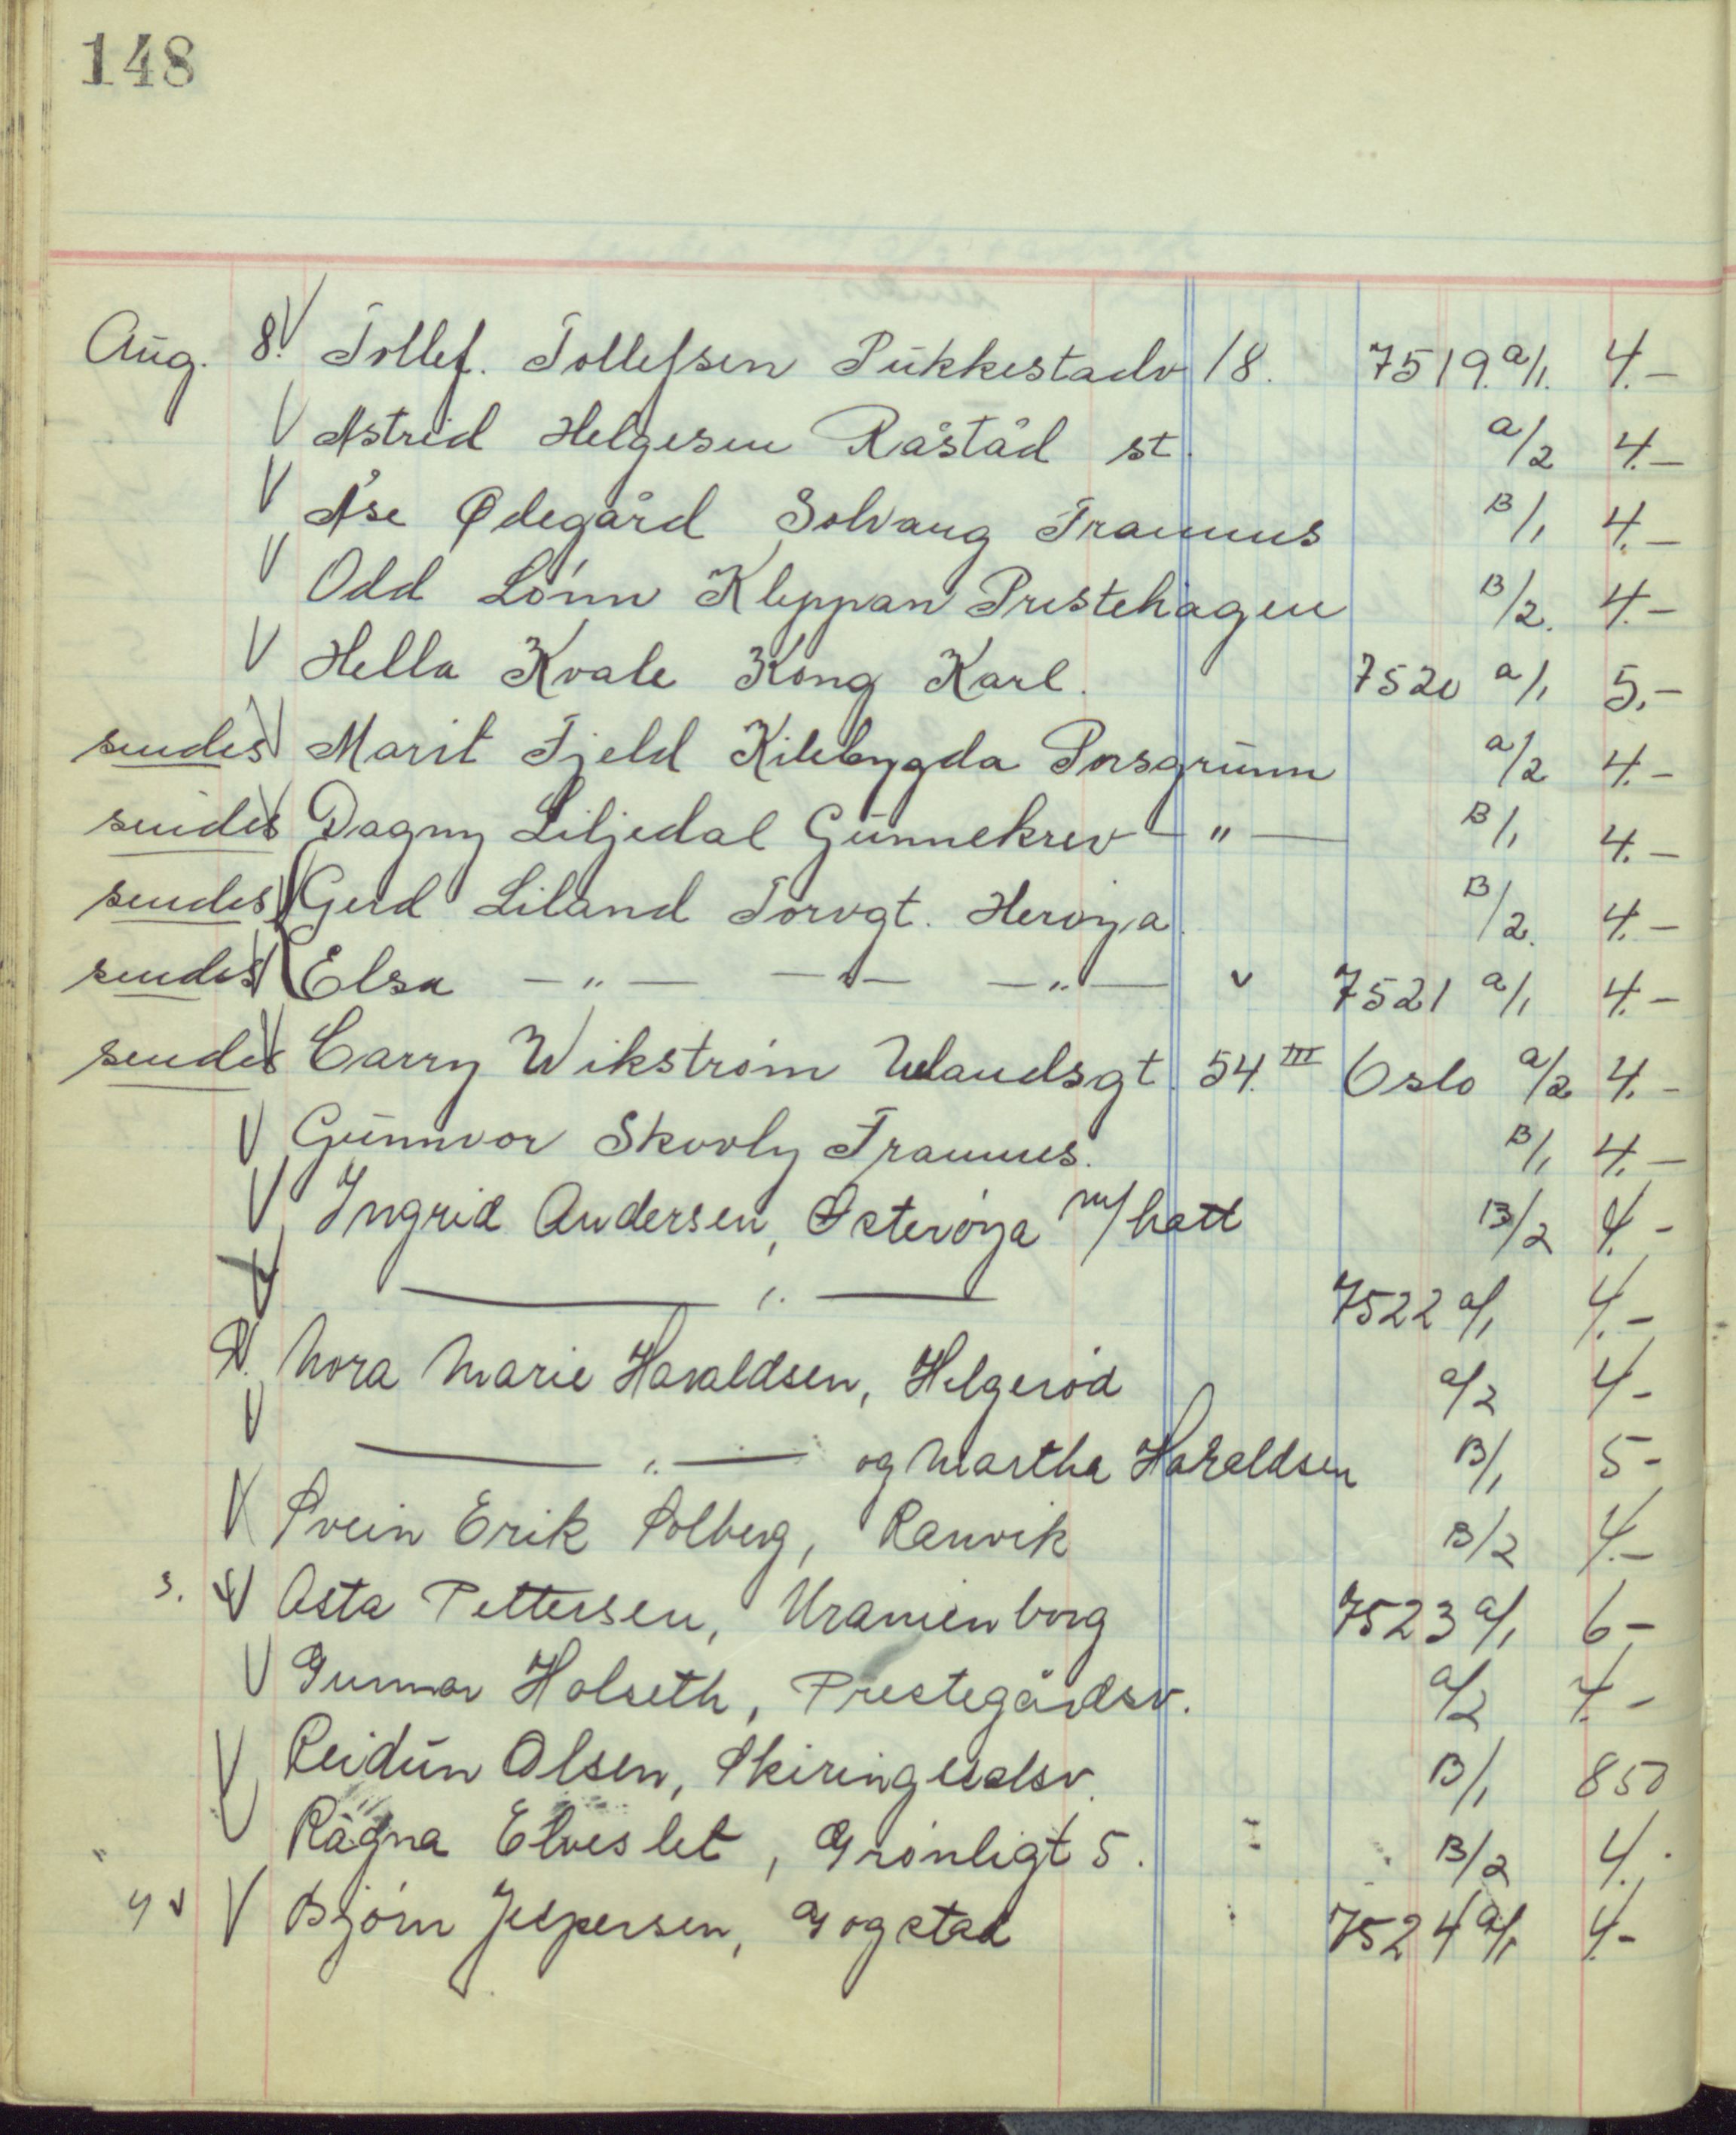 148
Aug. 8. Tollef. Tollefsen Pukkestadv 18. 7519. a/1. 4.-
Astrid Helgesen Råstad st. a/2 4.-
Åse Ødegård Solvang Framnes B/1 4.-
Odd Lönn Kleppan Prestehagen B/2. 4.-
Hella Kvale Kong Karl. 7520 a/1 5.-
sendes Marit Fjeld Kilebygda Porsgrunn a/2 4.-
sendes Dagny Liljedal Gunneklev — " — B/1 4.-
sendes Gerd Liland Torvgt. Herøya. B/2. 4.-
sendes Elsa — " — — " — — " — 7521 a/1 4.-
sendes Carry Wikstrøm Uelandsgt. 54. III Oslo a/2 4.-
Gunnvor Skovly Framnes. B/1 4.-
Ingrid Andersen, Østerøya m/hatt B/2 4.-
— " — 7522 a/1 4.-
Nora Marie Haraldsen, Helgerød a/2 4-
— " — og Martha Haraldsen B/1 5-
Svein Erik Solberg, Ranvik B/2 4.-
s. Asta Pettersen, Uranienborg 7523 a/1 6-
Gunnar Holseth, Prestegårdsv. a/2 4-
Reidun Olsen, Skiringsalsv. B/1 850
Ragna Elveslet, Grønligt 5. B/2 4.
Bjørn Jespersen, Gogstad 7524 a/1 4.-